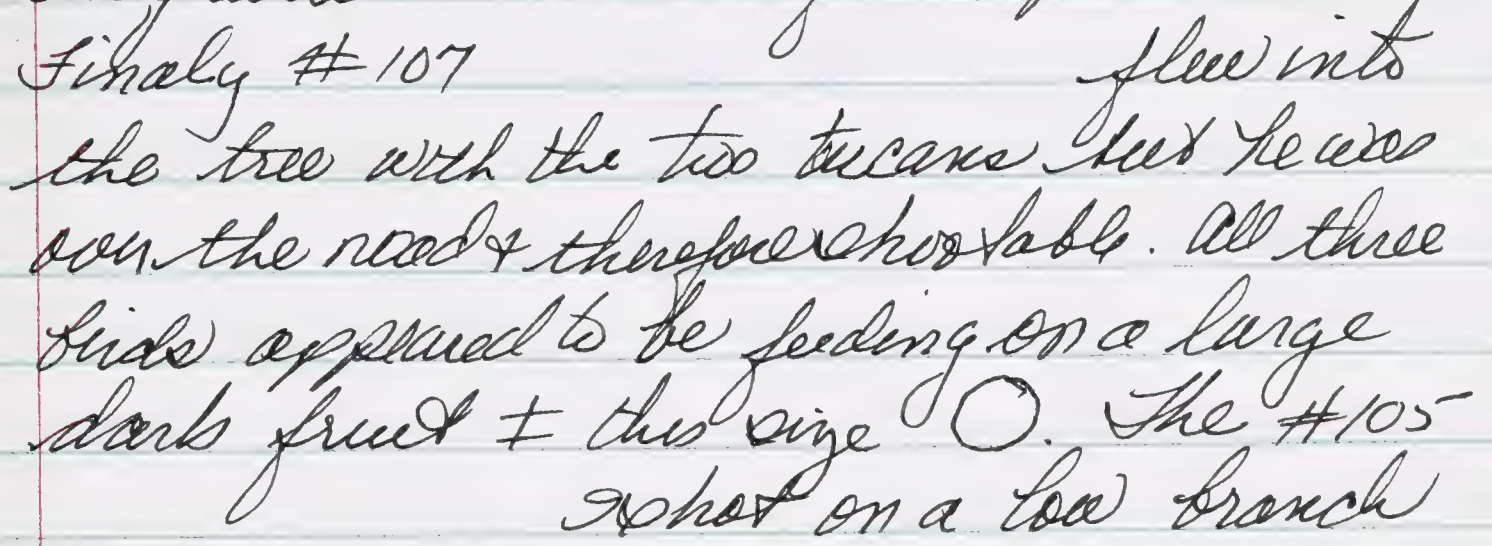 Finaly #107 flew into
the tree with the two tucans but he was
over the road & therefore shootable. All three
birds appeared to be feeding on a large
dark fruit ± this size O. The #105
I shot on a low branch